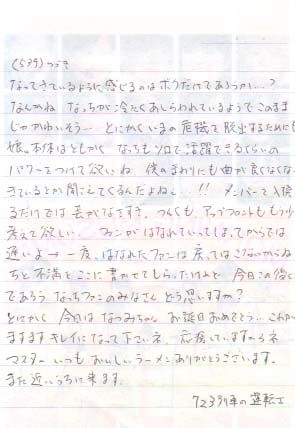 (539)つづき
なってきているように感じるのはボクだけであろうか…?
なんかね なっちが冷たくあしらわれているようでこのまま
じゃかわいそう… とにかくいまの危機を脱出するためにも
娘。本体はともかく なっちもソロで活躍できるくらいの
パワーをつけて欲しいね。僕のまわりにも曲が良くなくなっ
てきているとか聞えてくるんだよね…!! メンバーを入換え
るだけでは芸がなさすぎ。つんくも、アップフロントももう少し
考えて欲しい。 ファンがはなれていってしまってからでは
遅いよ→一度、はなれたファンは戻ってはこないからね
ちと不満をここに書かせてもらったけれど 今日この後くる
であろう なっちファンのみなさん どう思いますか?
とにかく 今日は なつみちゃん お誕生日おめでとう… これからも
ますますキレイになって下さいネ。応援していますからネ
マスター いつも おいしいラーメン ありがとうございます。
また近いうちに来ます。
723列車の運転士